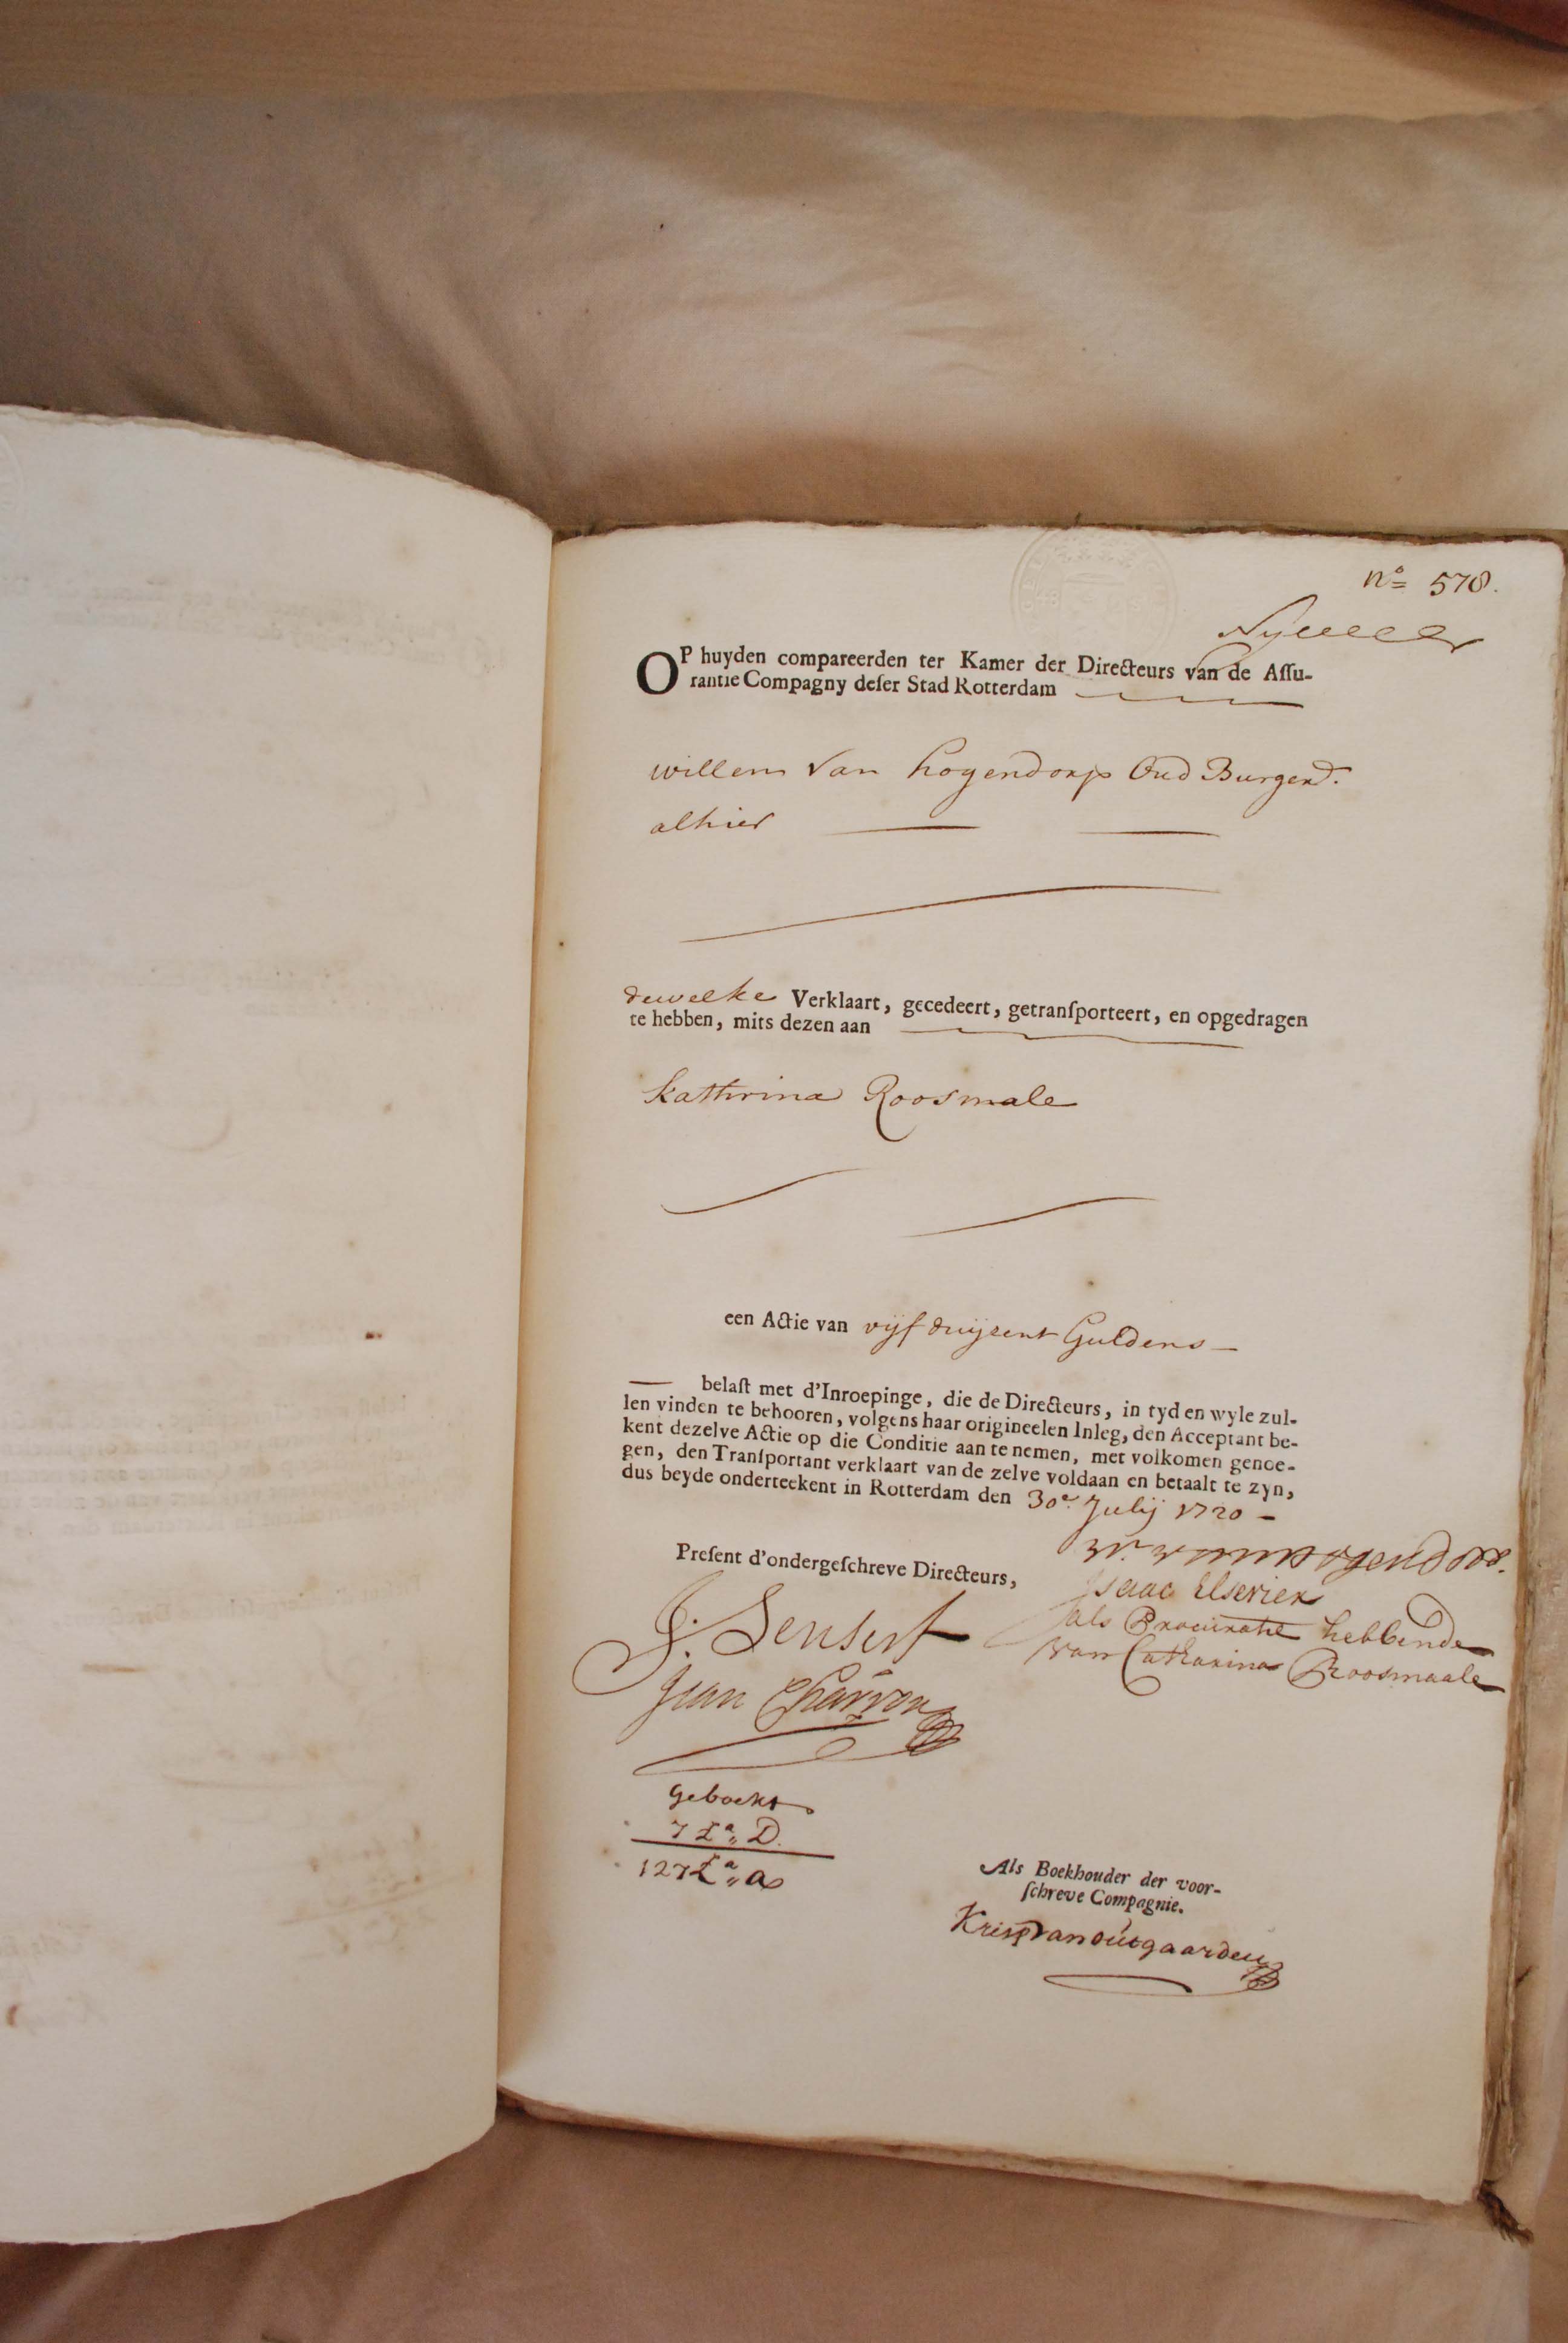 nº 578.
OP huyden compareerden ter Kamer der Directeurs van de Assu-
rantie Compagny deser Stad Rotterdam
willem Van hogendorp Oud Burgerm.
alhier
dewelke Verklaart, gecedeert, getransporteert, en opgedragen
te hebben, mits dezen aan
kathrina Roosmale
een Actie van vijf duijsent Guldens
belast met d'Inroepinge, die de Directeurs, in tyd en wyle zul-
len vinden te behooren, volgens haar origineelen Inleg, den Acceptant be-
kent dezelve Actie op die Conditie aan te nemen, met volkomen genoe-
gen, den Transportant verklaart van de zelve voldaan en betaalt te zyn,
dus beyde onderteekent in Rotterdam den 30e. Julij 1720
W. van hogendorp.
Present d'ondergeschreve Directeurs,
Isaac Elsevier
als Procuratie hebbende
van Catharina Roosmaale
J. Sensert
Jean Charron
geboekt
7 La. D.
127 La. a
Als Boekhouder der voor-
schreve Compagnie.
Kris van outgaarden